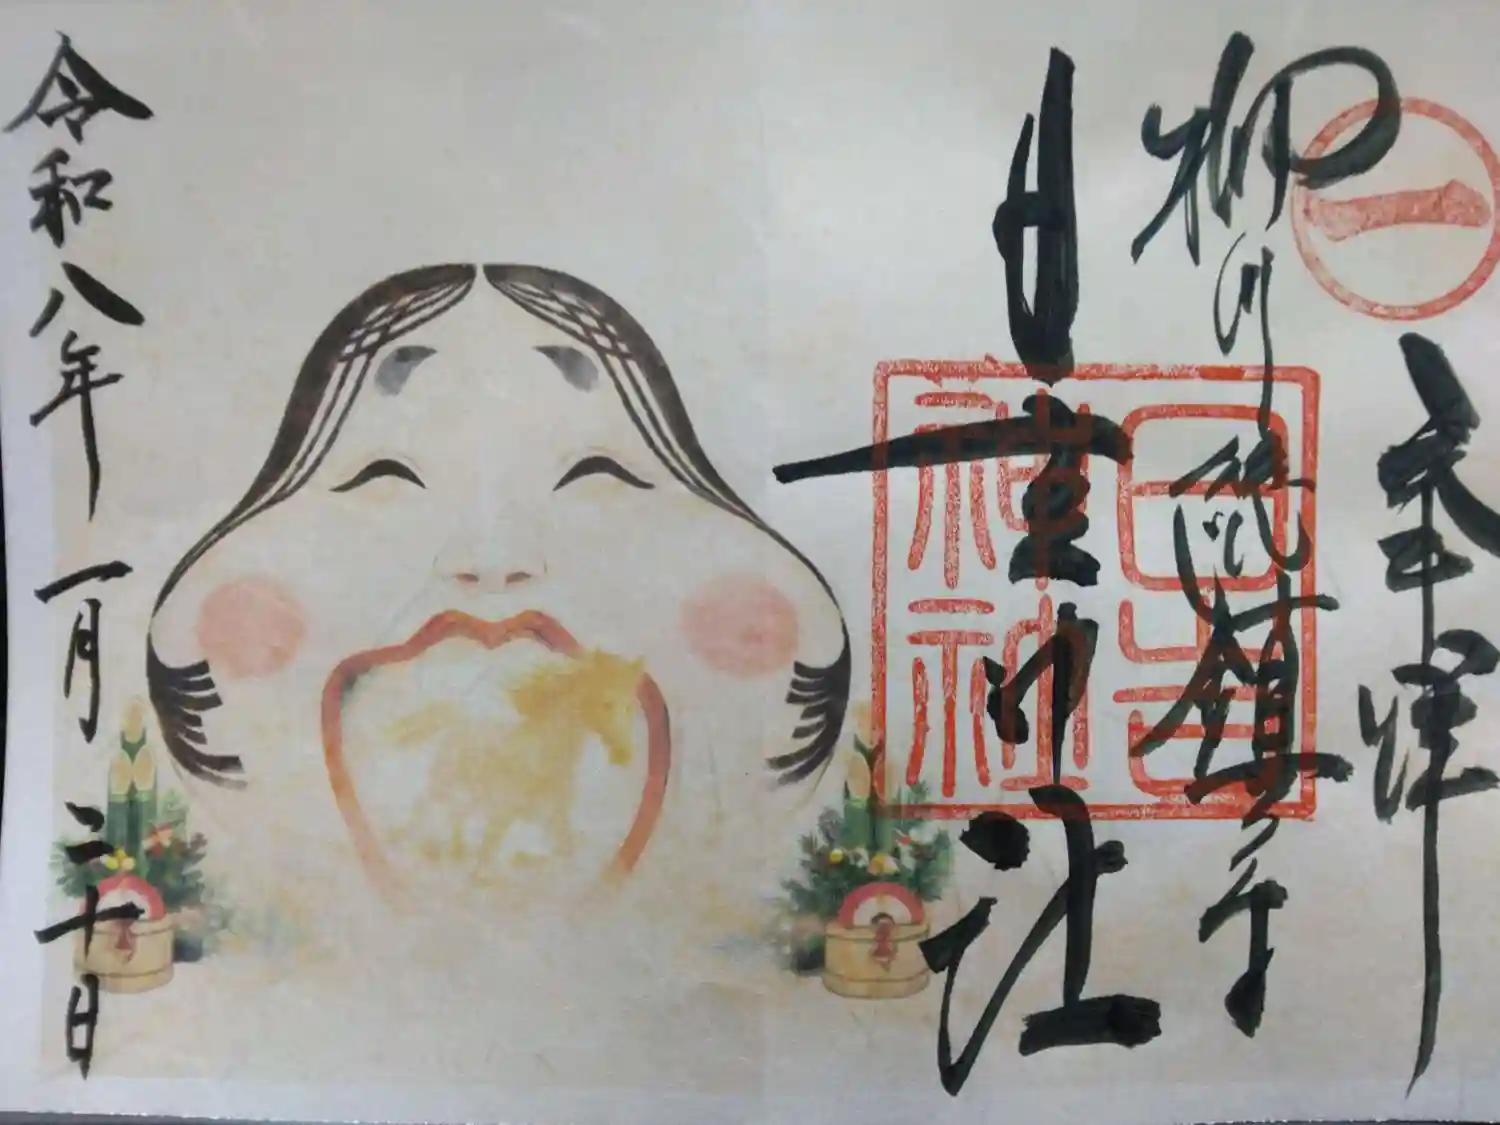 一
奉拝
柳川総鎮守
日吉神社
日吉神社
令和八年一月二十日